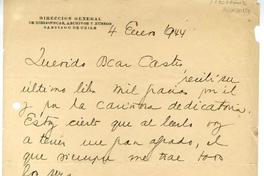 DIRECCION GENERAL
DE BIBLIOTECAS, ARCHIVOS Y MUSEOS
SANTIAGO DE CHILE
4 Enero 1944
Querido Oscar Castro
recibí su
último libro mil gracias por él
y por la cariñosa dedicatoria.
Estoy cierto que al leerlo voy
a tener un gran agrado, el
que siempre me trae todo
lo suyo